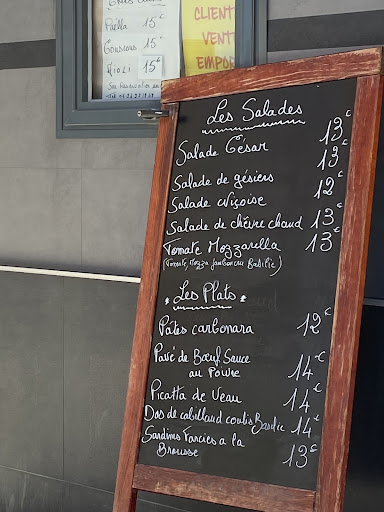 Paëlla 15€
Couscous 15€
Aïoli 15€
CLIENT
VENT
EMPOR
Les Salades
Salade César 13€
Salade de gésiers 13€
Salade niçoise 12€
Salade de chèvre chaud 13€
Tomate Mozzarella 13€
(Tomate, Mozza jambon cru Basilic)
Les Plats
Pâtes carbonara 12€
Pavé de Bœuf Sauce
au Poivre 14€
Picatta de Veau 14€
Dos de cabillaud coulis Basilic 14€
Sardines Farcies a la
Brousse 13€